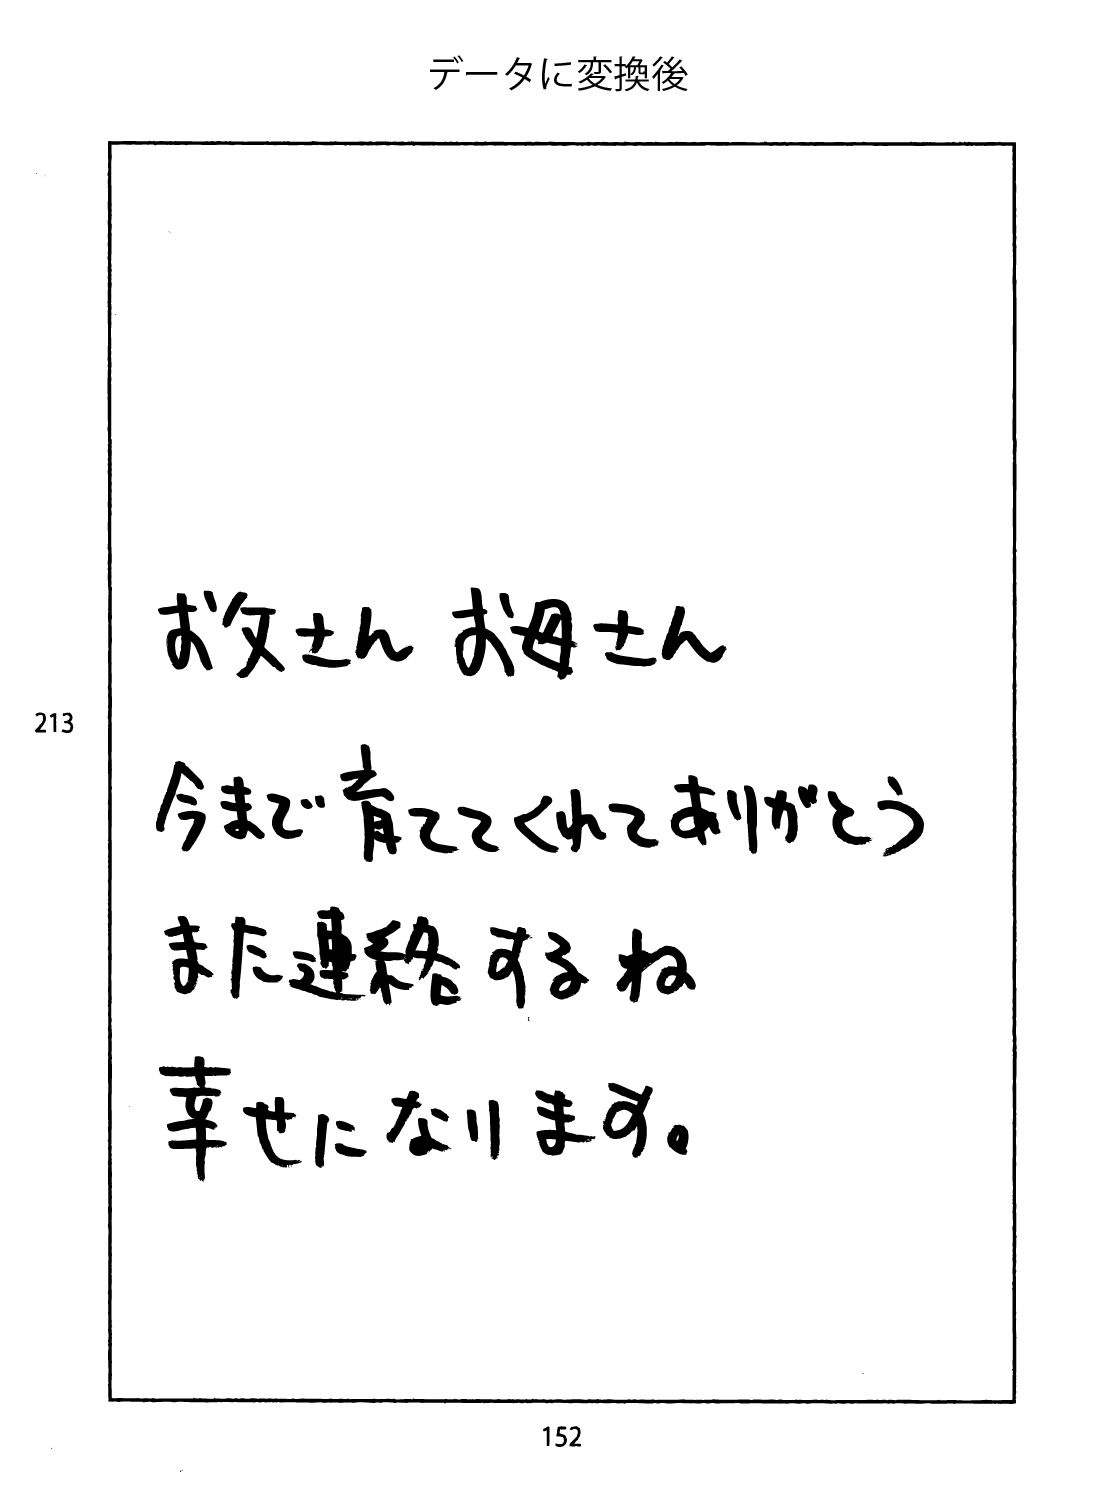 データに変換後
お父さん お母さん
213
今まで育ててくれてありがとう
また連絡するね
幸せになります。
152